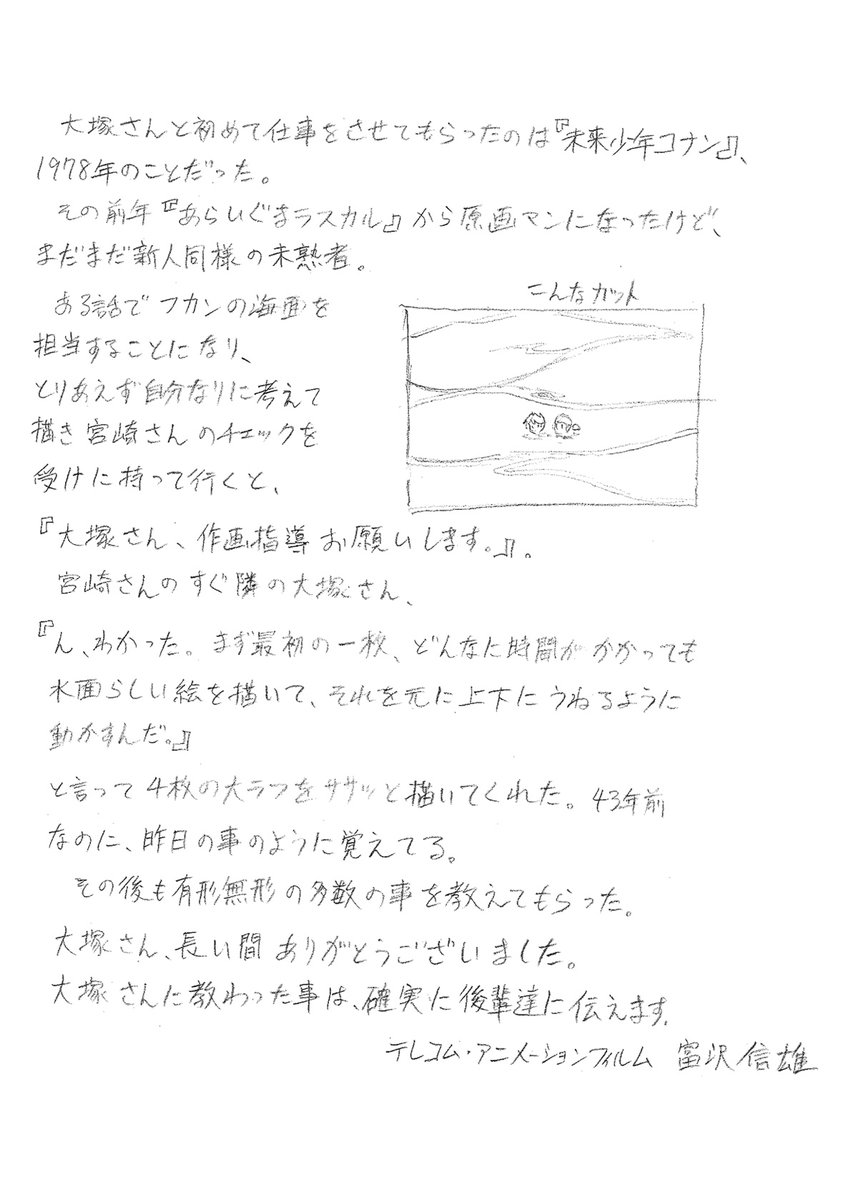 大塚さんと初めて仕事をさせてもらったのは『未来少年コナン』、
1978年のことだった。
その前年『あらいぐまラスカル』から原画マンになったけど、
まだまだ新人同様の未熟者。
こんなカット
ある話でフカンの海面を
担当することになり、
とりあえず自分なりに考えて
描き宮崎さんのチェックを
受けに持って行くと、
『大塚さん、作画指導お願いします。』。
宮崎さんのすぐ隣の大塚さん、
『ん、わかった。まず最初の一枚、どんなに時間がかかっても
水面らしい絵を描いて、それを元に上下にうねるように
動かすんだ。』
と言って4枚の大ラフをササッと描いてくれた。43年前
なのに、昨日の事のように覚えてる。
その後も有形無形の多数の事を教えてもらった。
大塚さん、長い間ありがとうございました。
大塚さんに教わった事は、確実に後輩達に伝えます。
テレコム・アニメーションフィルム 富沢信雄